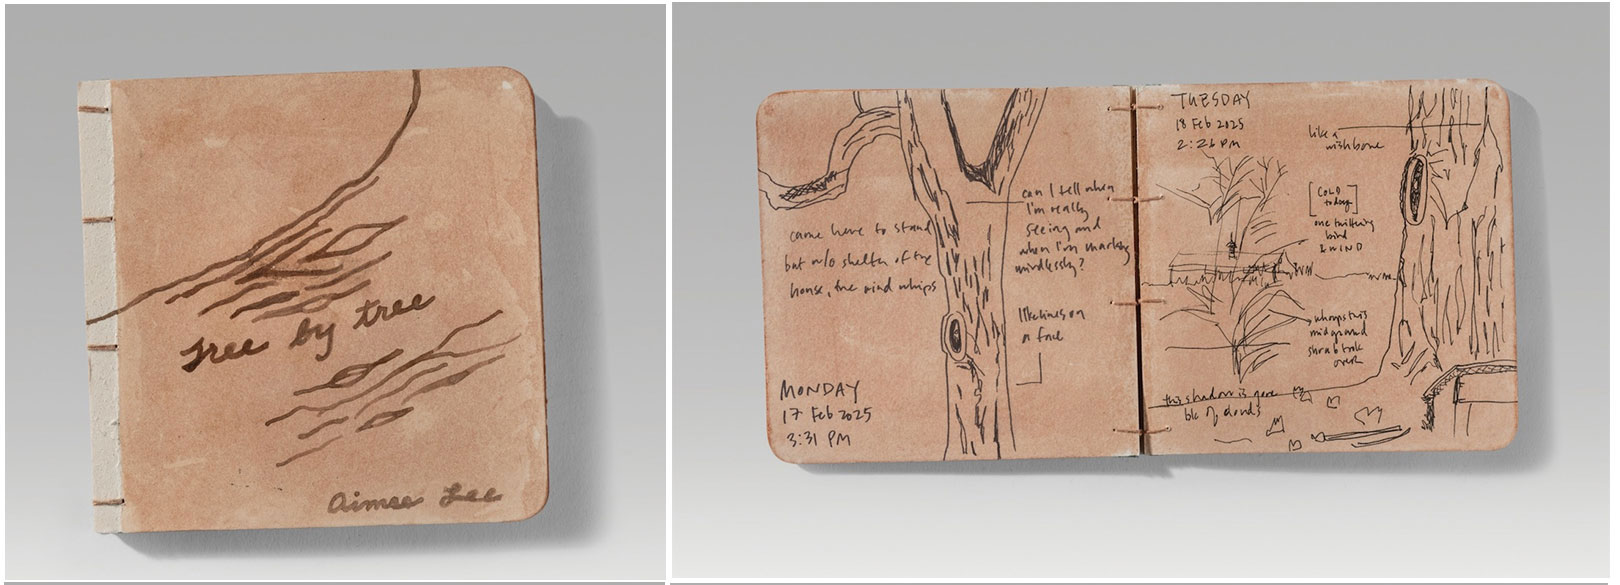 tree by tree
Aimee Lee
came here to stand
but w/o shelter of the
house, the wind whips
can I tell when
I'm really
seeing and
when I'm marking
mindlessly?
like lines on
a face
MONDAY
17 Feb 2025
3:31 PM
TUESDAY
18 Feb 2025
2:26 PM
like a
wishbone
[COLD
today]
one twittering
bird
& WIND
whoops this
midground
shrub took
over
this shadow is gone
b/c of clouds